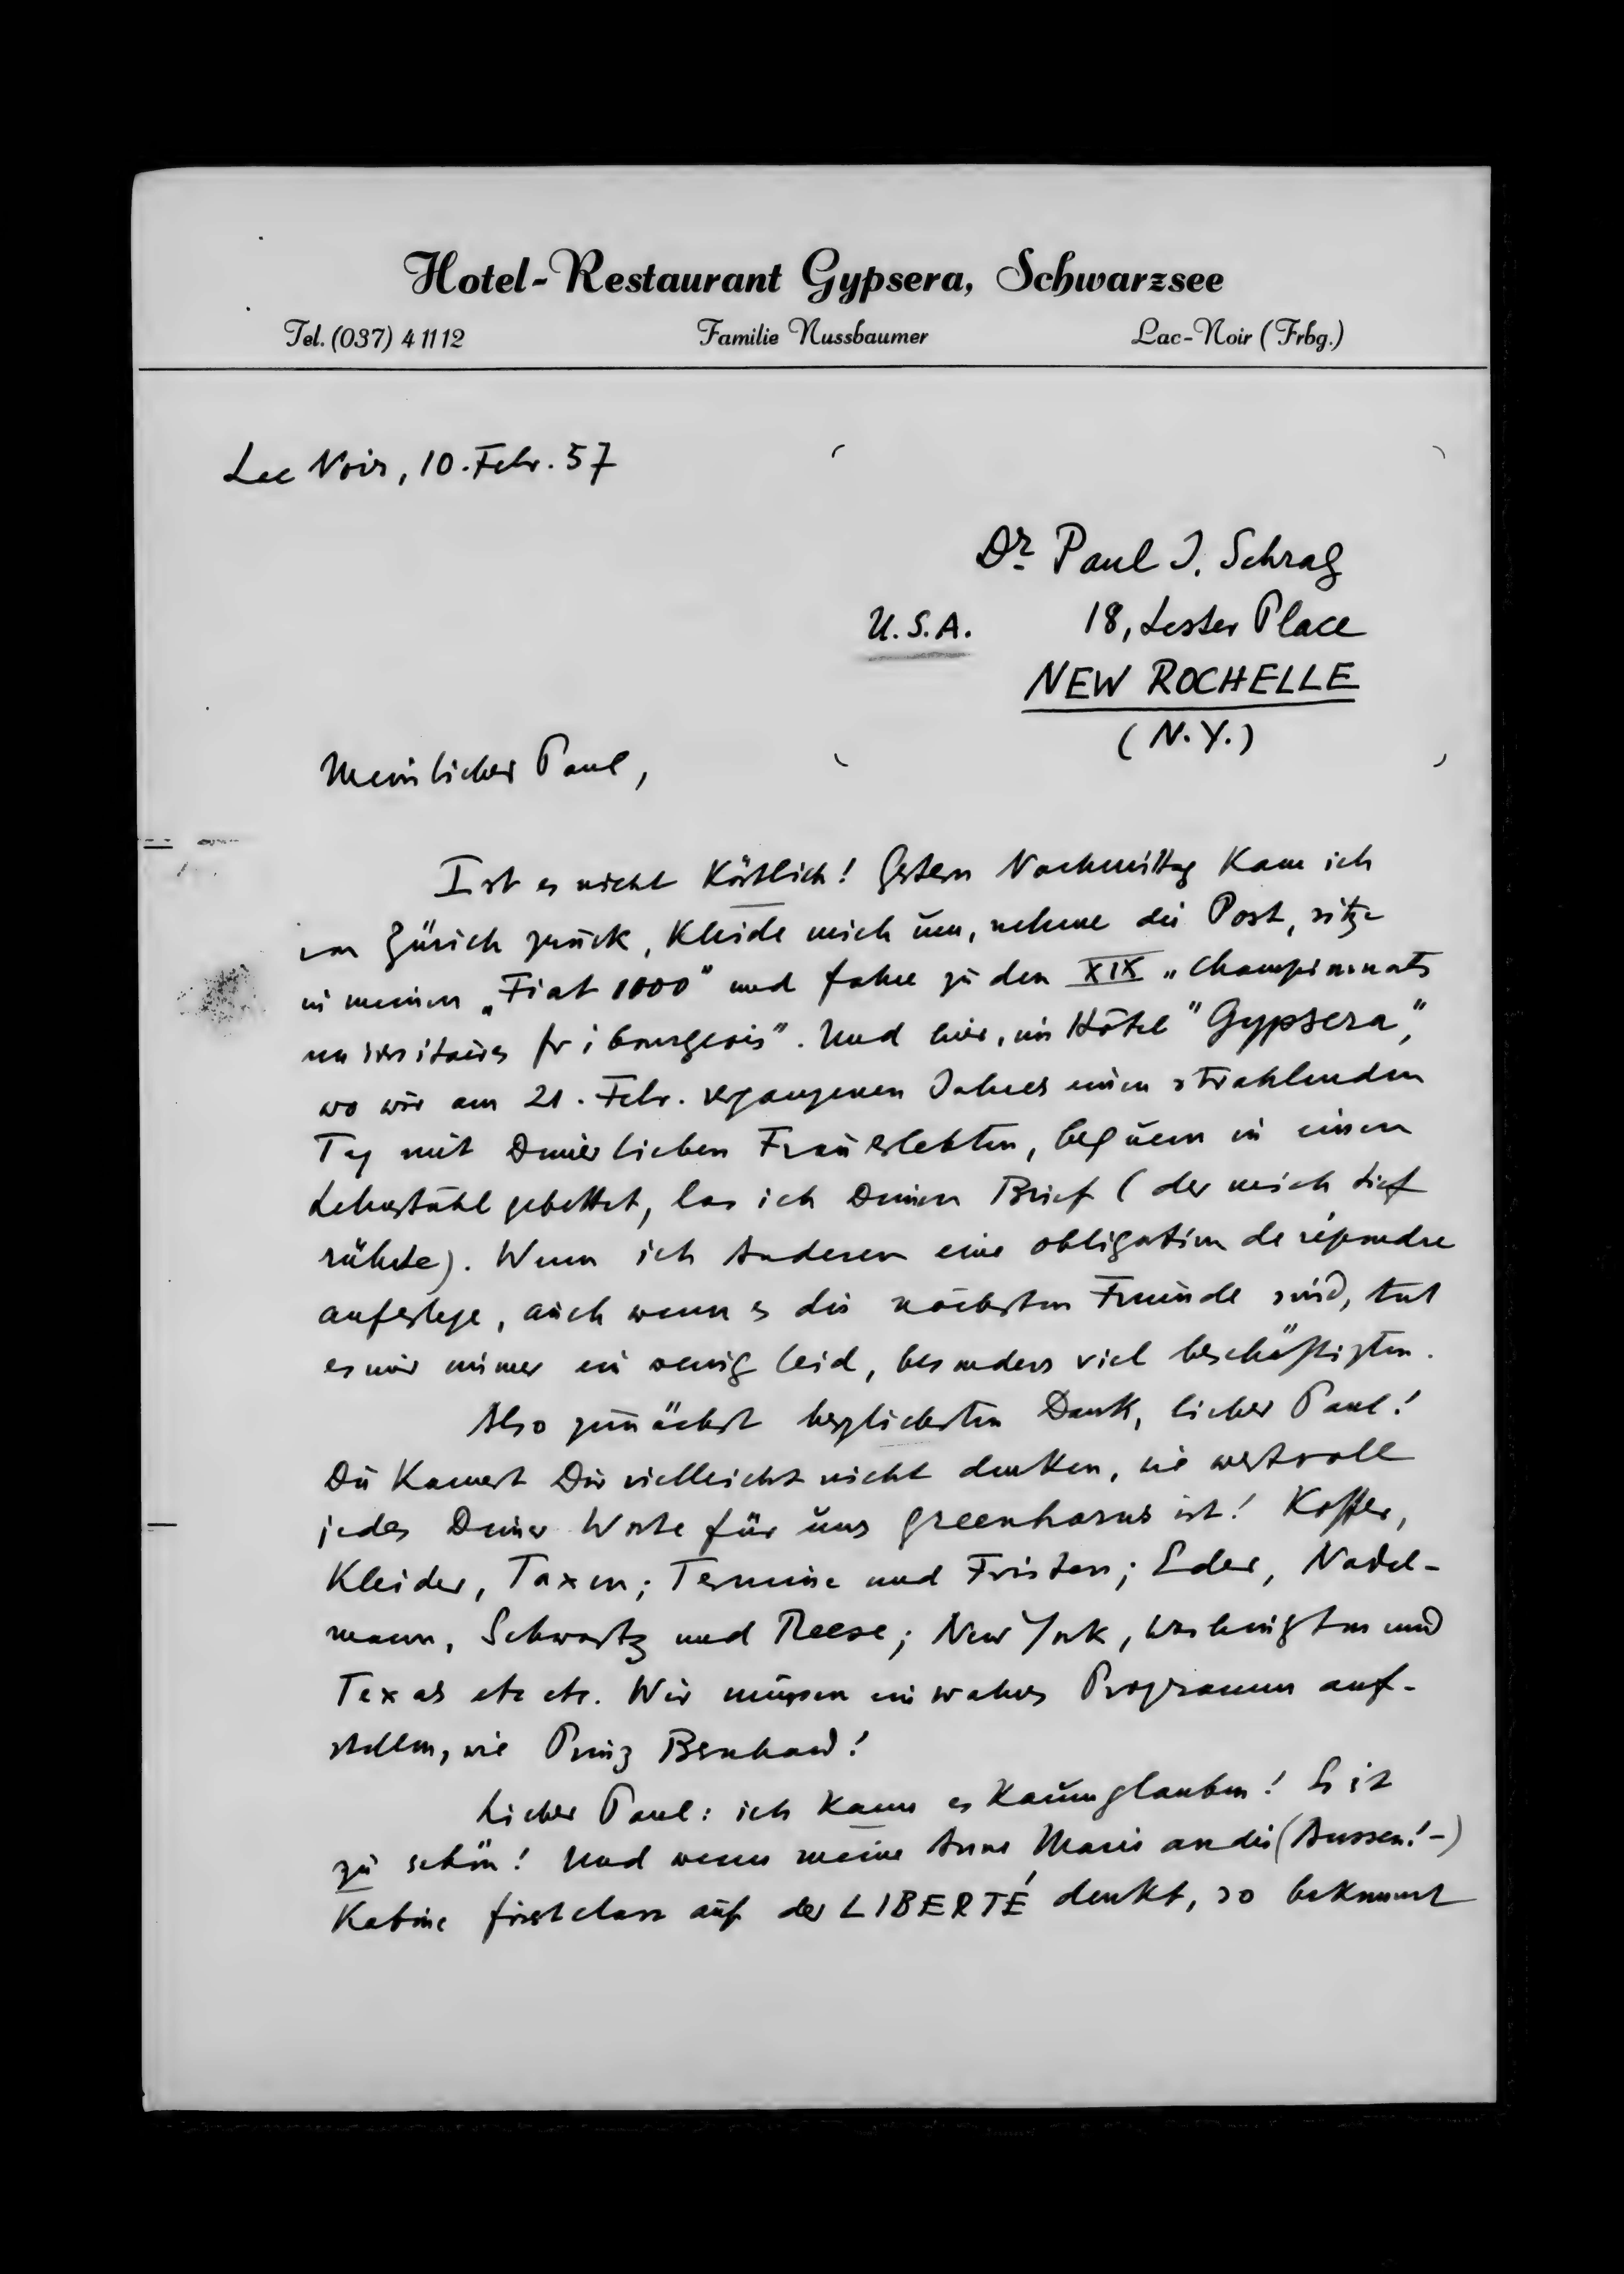 Hotel-Restaurant Gypsera, Schwarzsee
Tel. (037) 4 11 12 Familie Nussbaumer Lac-Noir (Frbg.)
Lac Noir, 10. Febr. 57
Dr. Paul J. Schrag
U.S.A. 18, Lester Place
NEW ROCHELLE
(N.Y.)
Mein lieber Paul,
Ist es nicht köstlich! Gestern Nachmittag kam ich
von Zürich zurück, kleide mich um, nehme die Post, sitze
in meinen „Fiat 1000" und fahre zu den XIX „Championnats
universitaires fribourgeois". Und hier, im Hôtel "Gypsera",
wo wir am 21. Febr. vergangenen Jahres einen strahlenden
Tag mit Deiner lieben Frau erlebten, bequem in einen
Lehnstuhl gebettet, las ich Deinen Brief (der mich tief
rührte). Wenn ich Anderen eine obligation de répondre
auferlege, auch wenn es die nächsten Freunde sind, tut
es mir immer ein wenig leid, besonders viel beschäftigten.
Also zunächst herzlichsten Dank, lieber Paul!
Du kannst Dir vielleicht nicht denken, wie wertvoll
jedes Deiner Worte für uns greenhorns ist! Koffer,
Kleider, Taxen; Termine und Fristen; Eder, Nadel-
mann, Schwartz und Reese; New York, Washington und
Texas etc etc. Wir müssen ein wahres Programm auf-
stellen, wie Prinz Bernhard!
Lieber Paul: ich kann es kaum glauben! Es ist
zu schön! Und wenn meine Anne Marie an die (Aussen!-)
Kabine first class auf der LIBERTÉ denkt, so bekommt